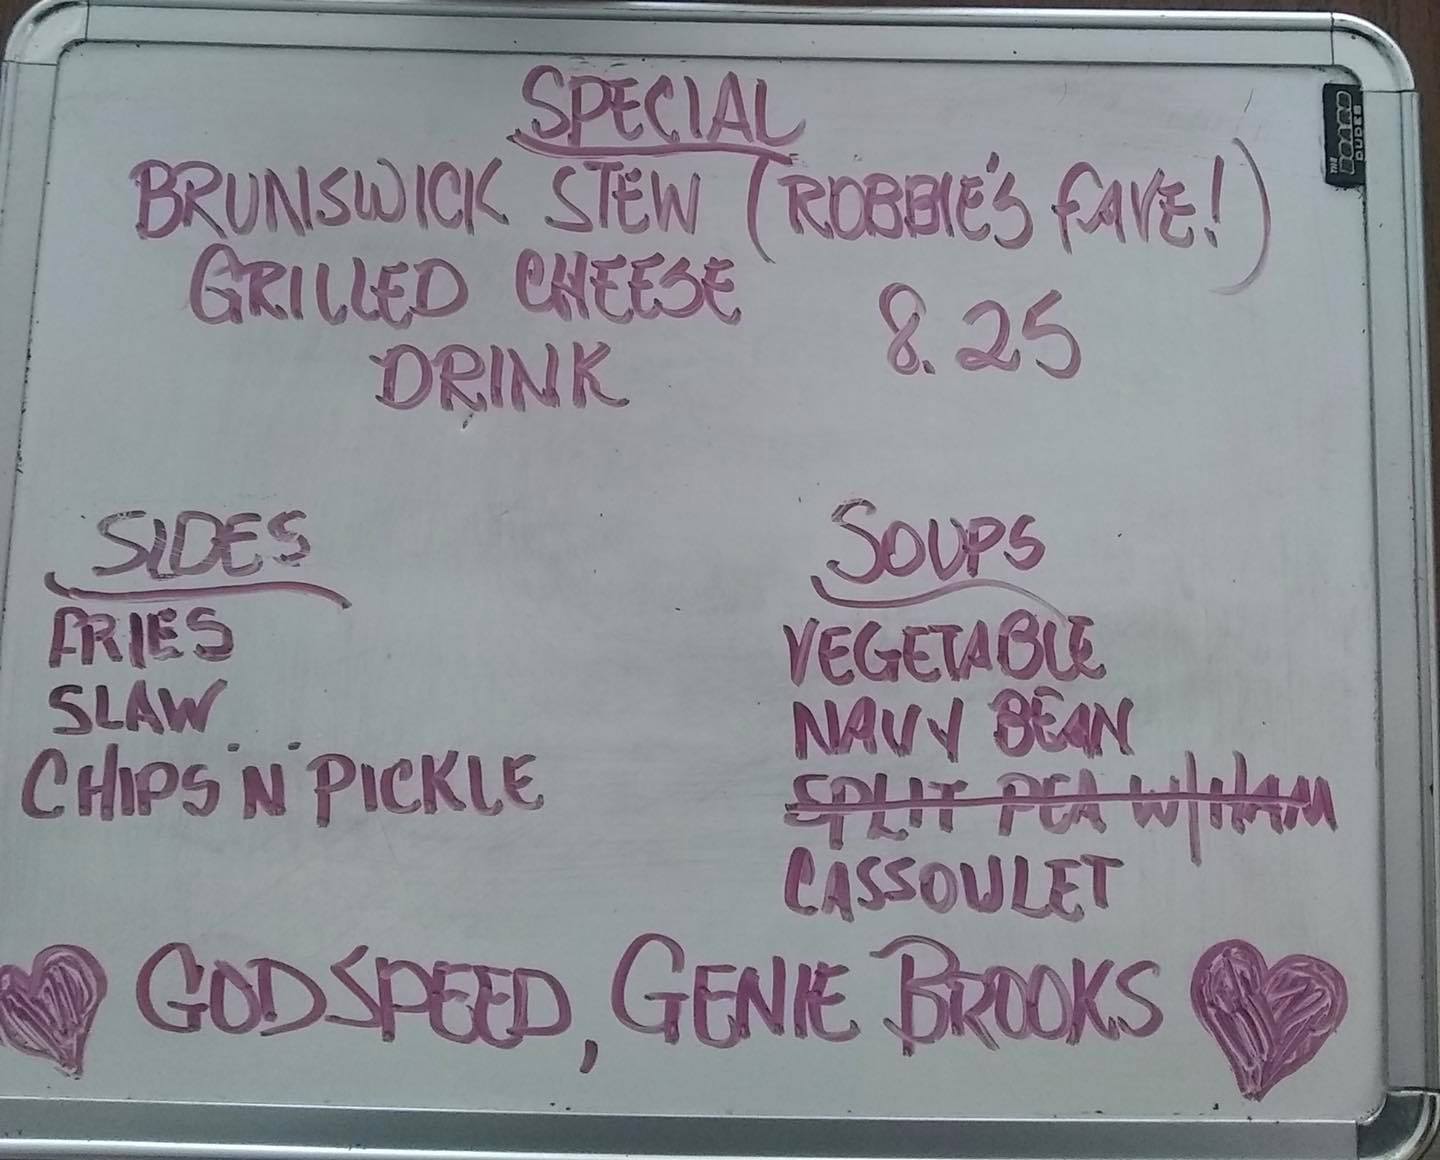 SPECIAL
BRUNSWICK STEW (ROBBIE'S FAVE!)
GRILLED CHEESE
8.25
DRINK
SIDES
FRIES
SLAW
CHIPS 'N' PICKLE
SOUPS
VEGETABLE
NAVY BEAN
SPLIT PEA W/HAM
CASSOULET
GODSPEED, GENIE BROOKS
THE BOARD DUDES